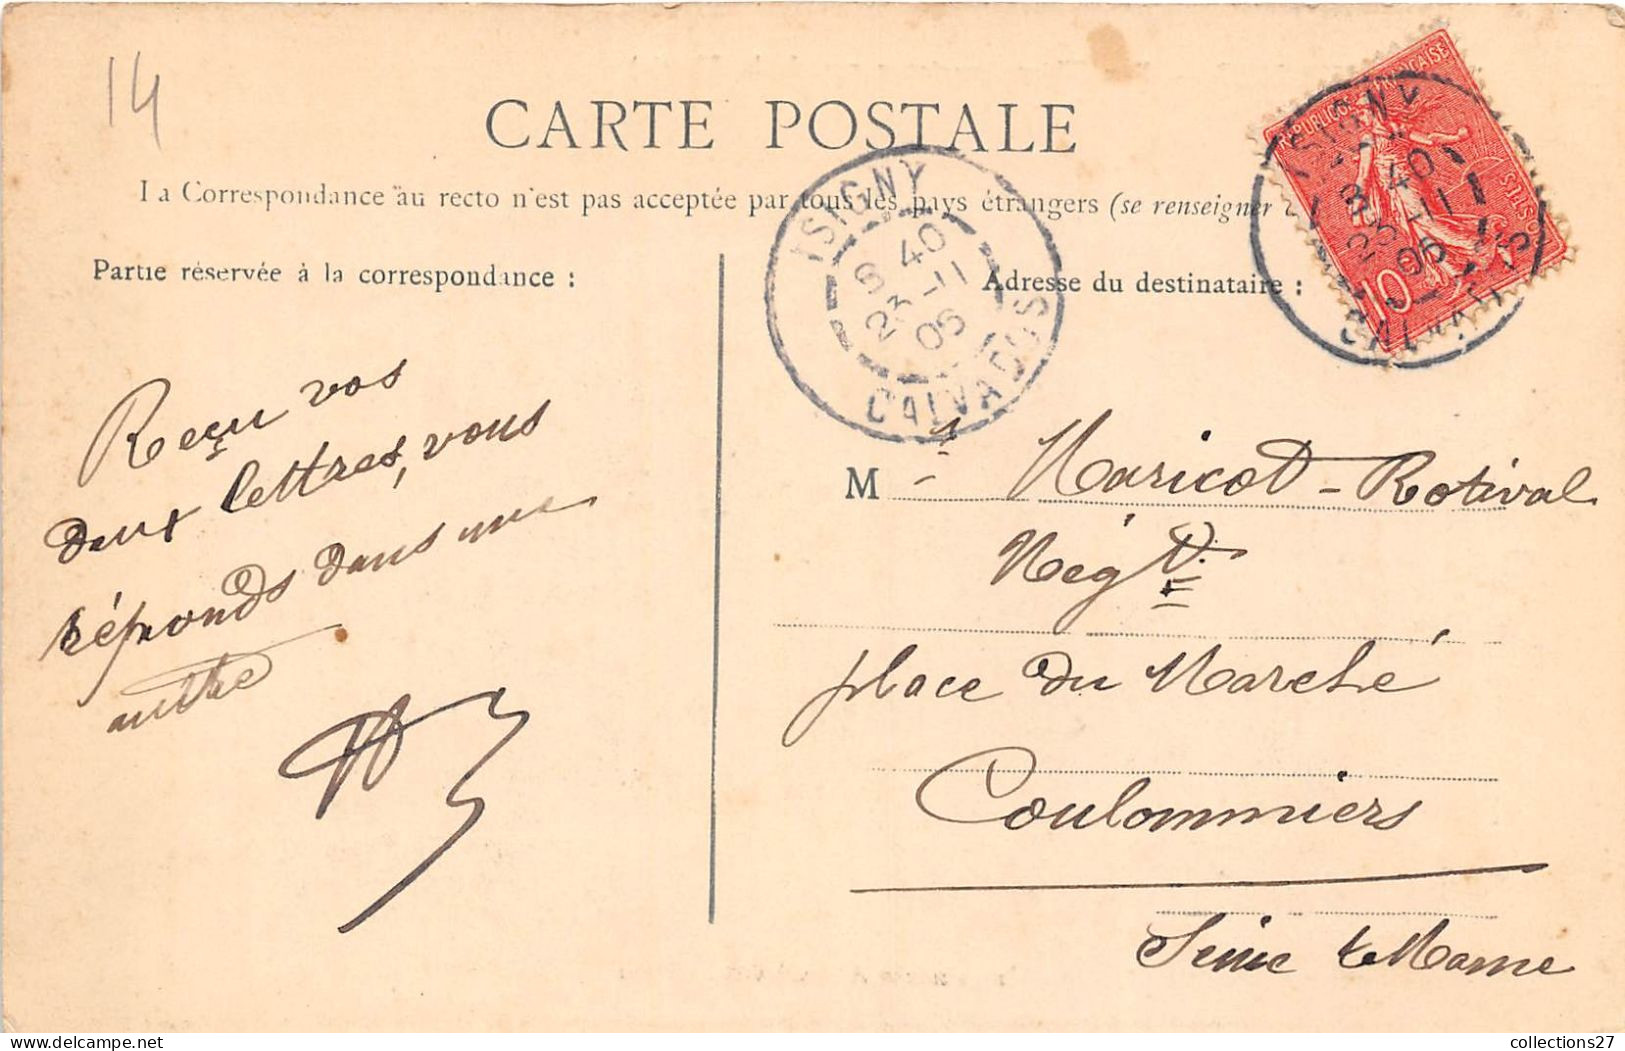 14
CARTE POSTALE
La Correspondance au recto n'est pas acceptée par tous les pays étrangers (se renseigner
RÉPUBLIQUE FRANÇAISE
POSTES
10
ISIGNY
40
23 -11
06
CALVADOS
ISIGNY
40
23 -11
06
CALVADOS
Partie réservée à la correspondance :
Reçu vos
deux lettres, vous
réponds dans une
autre
Adresse du destinataire :
M r Haricot-Rotival
Négt
place du Marché
Coulommiers
Seine & Marne
collections27